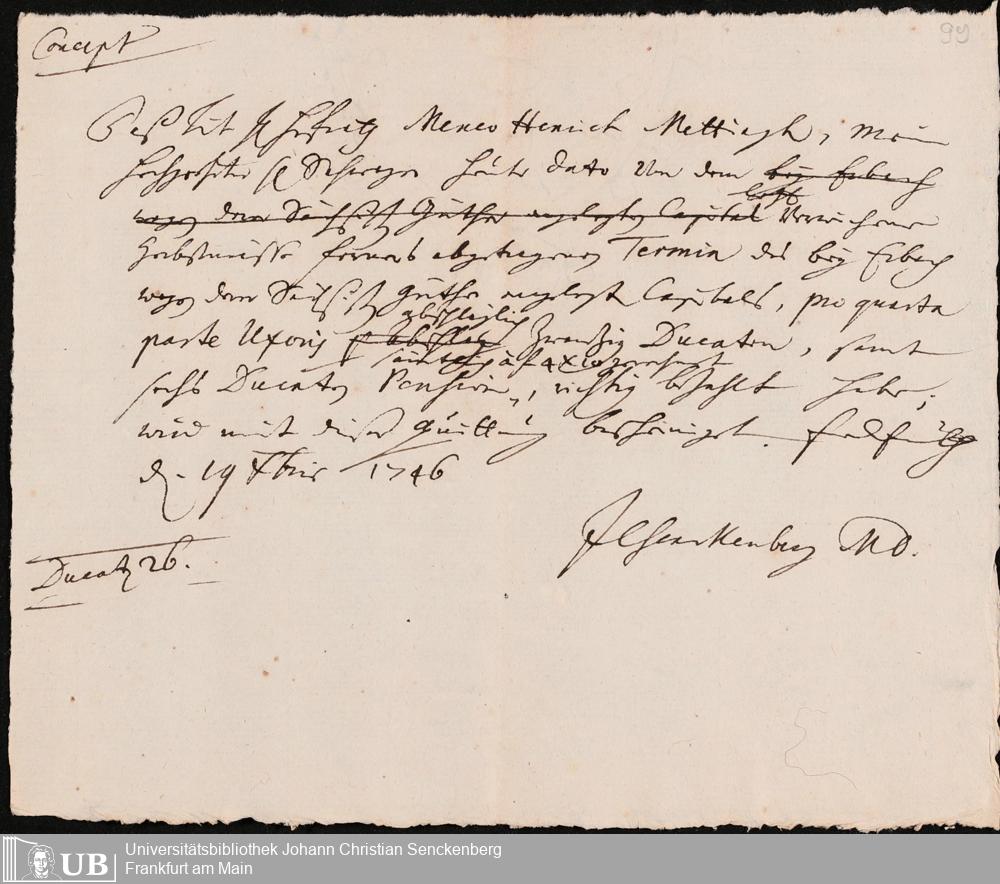 Concept
99
Daß Tit. H. Hoffrath Menco Henrich Mettingh, mein
Hochgeehrter H. Schwager heute dato von dem bey Erbach
letzt
wegen der Güther angelegten Capital Verwichene
Herbstmesse ferner abgetragenen Termin des bey Erbach
wegen der Güther angelegten Capitals, pro quarta
abschläglich
parte Uxoris zwanzig Ducaten, samt
sechs Ducaten Pension, richtig bezahlt habe,
wird mit dieser Quittung bescheiniget. Frankfurt
d. 19 Xbris 1746
JCSenckenberg MD.
Ducaten 26.
UB
Universitätsbibliothek Johann Christian Senckenberg
Frankfurt am Main